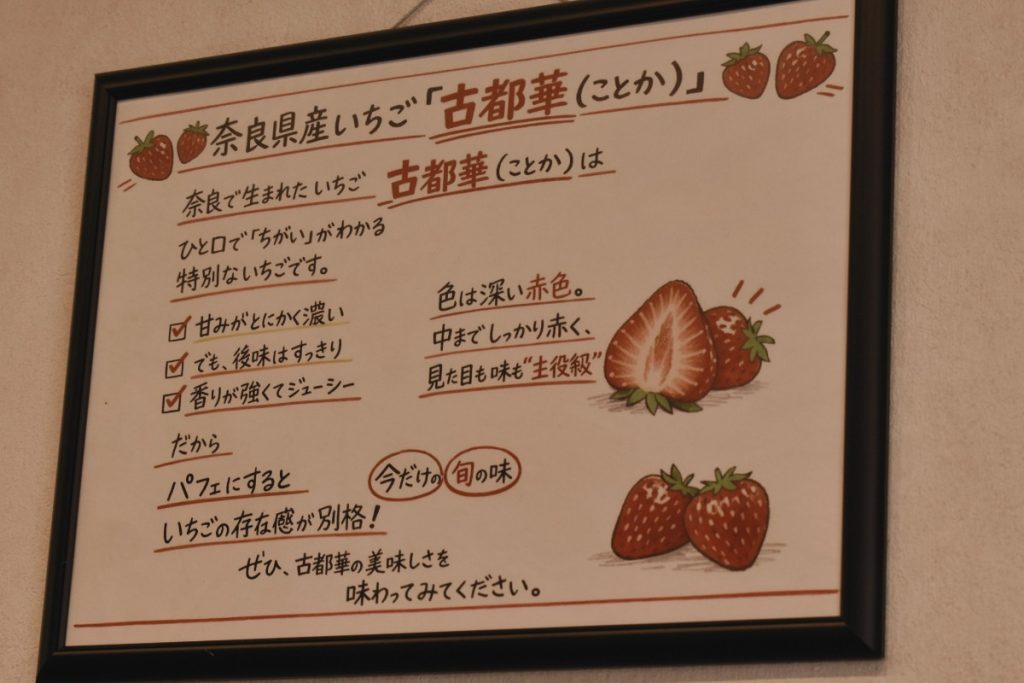 奈良県産いちご「古都華(ことか)」
奈良で生まれたいちご 古都華(ことか)は
ひと口で「ちがい」がわかる
特別ないちごです。
甘みがとにかく濃い
でも、後味はすっきり
香りが強くてジューシー
色は深い赤色。
中までしっかり赤く、
見た目も味も“主役級”
だから
パフェにすると
いちごの存在感が別格!
今だけの旬の味
ぜひ、古都華の美味しさを
味わってみてください。